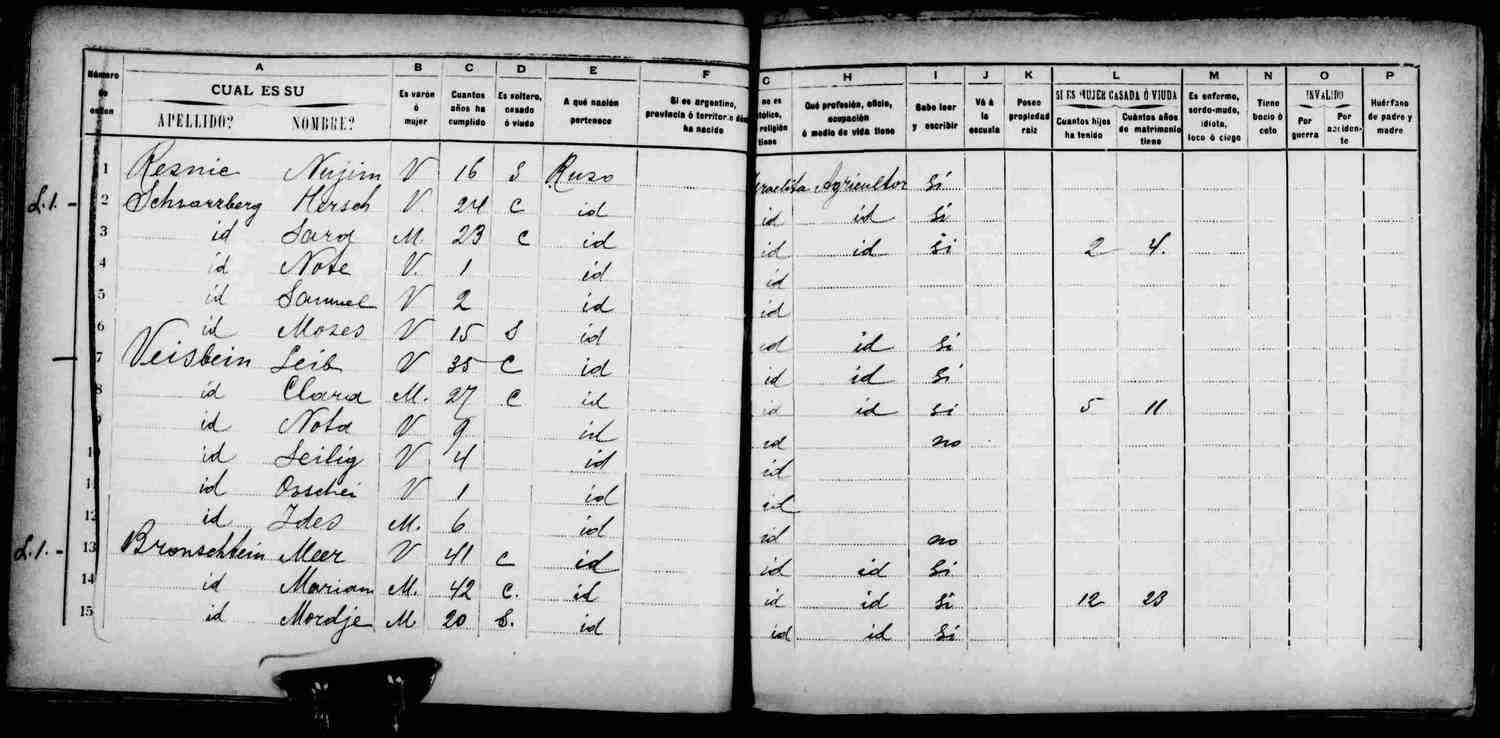 A B C D E F G H I J K L M N O P
Número de orden CUAL ES SU APELLIDO? NOMBRE? Es varón ó mujer Cuantos años ha cumplido Es soltero, casado ó viudo A qué nación pertenece Si es argentino, provincia ó territorio ha nacido no es religión tiene Qué profesión, oficio, ocupación ó medio de vida tiene Sabe leer y escribir Vá á la escuela Posee propiedad raiz SI ES MUJER CASADA Ó VIUDA Cuantos hijos ha tenido Cuántos años de matrimonio tiene Es enfermo, sordo-mudo, idiota, loco ó ciego Tiene bocio ó coto INVALIDO Por guerra Por acciden-te Huérfano de padre y madre
1 Resnic Nujim V 16 S Ruso Agricultor si
L.1. - 2 Schvarzberg Hersch V. 24 C id id id si
3 id Sara M. 23 C id id id si 2 4.
4 id Note V. 1 id id
5 id Samuel V 2 id id
6 id Moses V 15 S id id id si
— 7 Veisbein Leib V 35 C id id id si
8 id Clara M. 27 C id id id si 5 11
9 id Nota V 9 id id no
10 id Seilig V 4 id id
11 id Osschei V 1 id id
12 id Ides M. 6 id id no
L.1. - 13 Bronschtein Meer V 41 C id id id si
14 id Mariam M. 42 C. id id id si 12 23
15 id Mordje M 20 S. id id id si